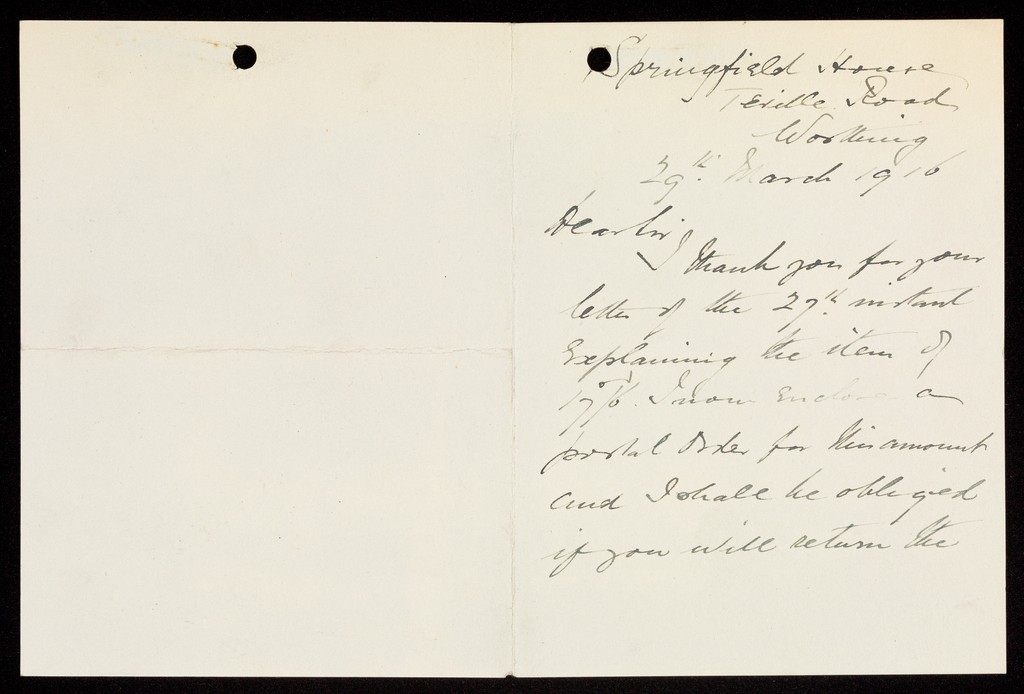 Springfield House
Teville Road
Worthing
29th. March 1916
Dear Sir
I thank you for your
letter of the 27th. instant
Explaining the item of
17/6. I now enclose a
postal Order for this amount
and I shall be obliged
if you will return the